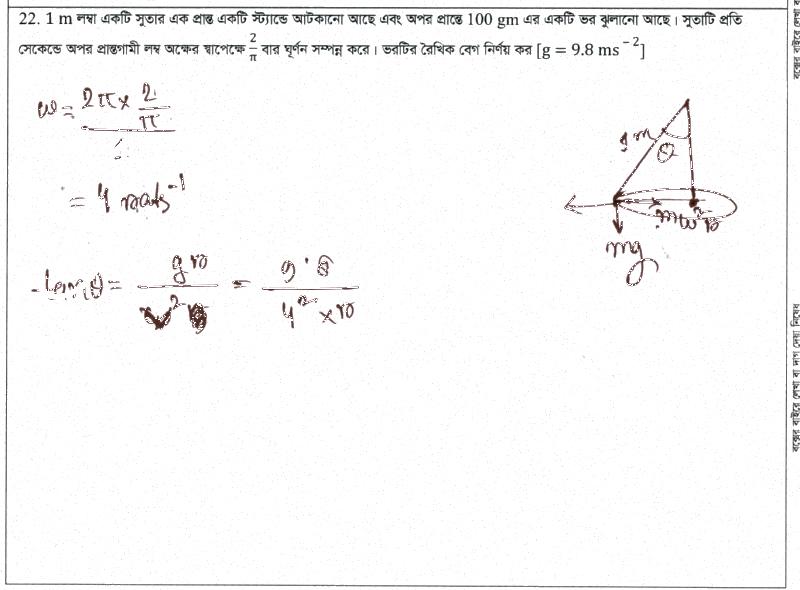 22. 1 m লম্বা একটি সুতার এক প্রান্ত একটি স্ট্যান্ডে আটকানো আছে এবং অপর প্রান্তে 100 gm এর একটি ভর ঝুলানো আছে। সুতাটি প্রতি
সেকেন্ডে অপর প্রান্তগামী লম্ব অক্ষের স্বাপেক্ষে 2/π বার ঘূর্ণন সম্পন্ন করে। ভরটির রৈখিক বেগ নির্ণয় কর [g = 9.8 ms⁻²]
ω = 2π × 2/π
= 4 rads⁻¹
1 m
θ
mω²r
mg
tanθ = / = 9.8 / 4² × r
বক্সের বাইরে লেখা বা দাগ দেয়া নিষেধ